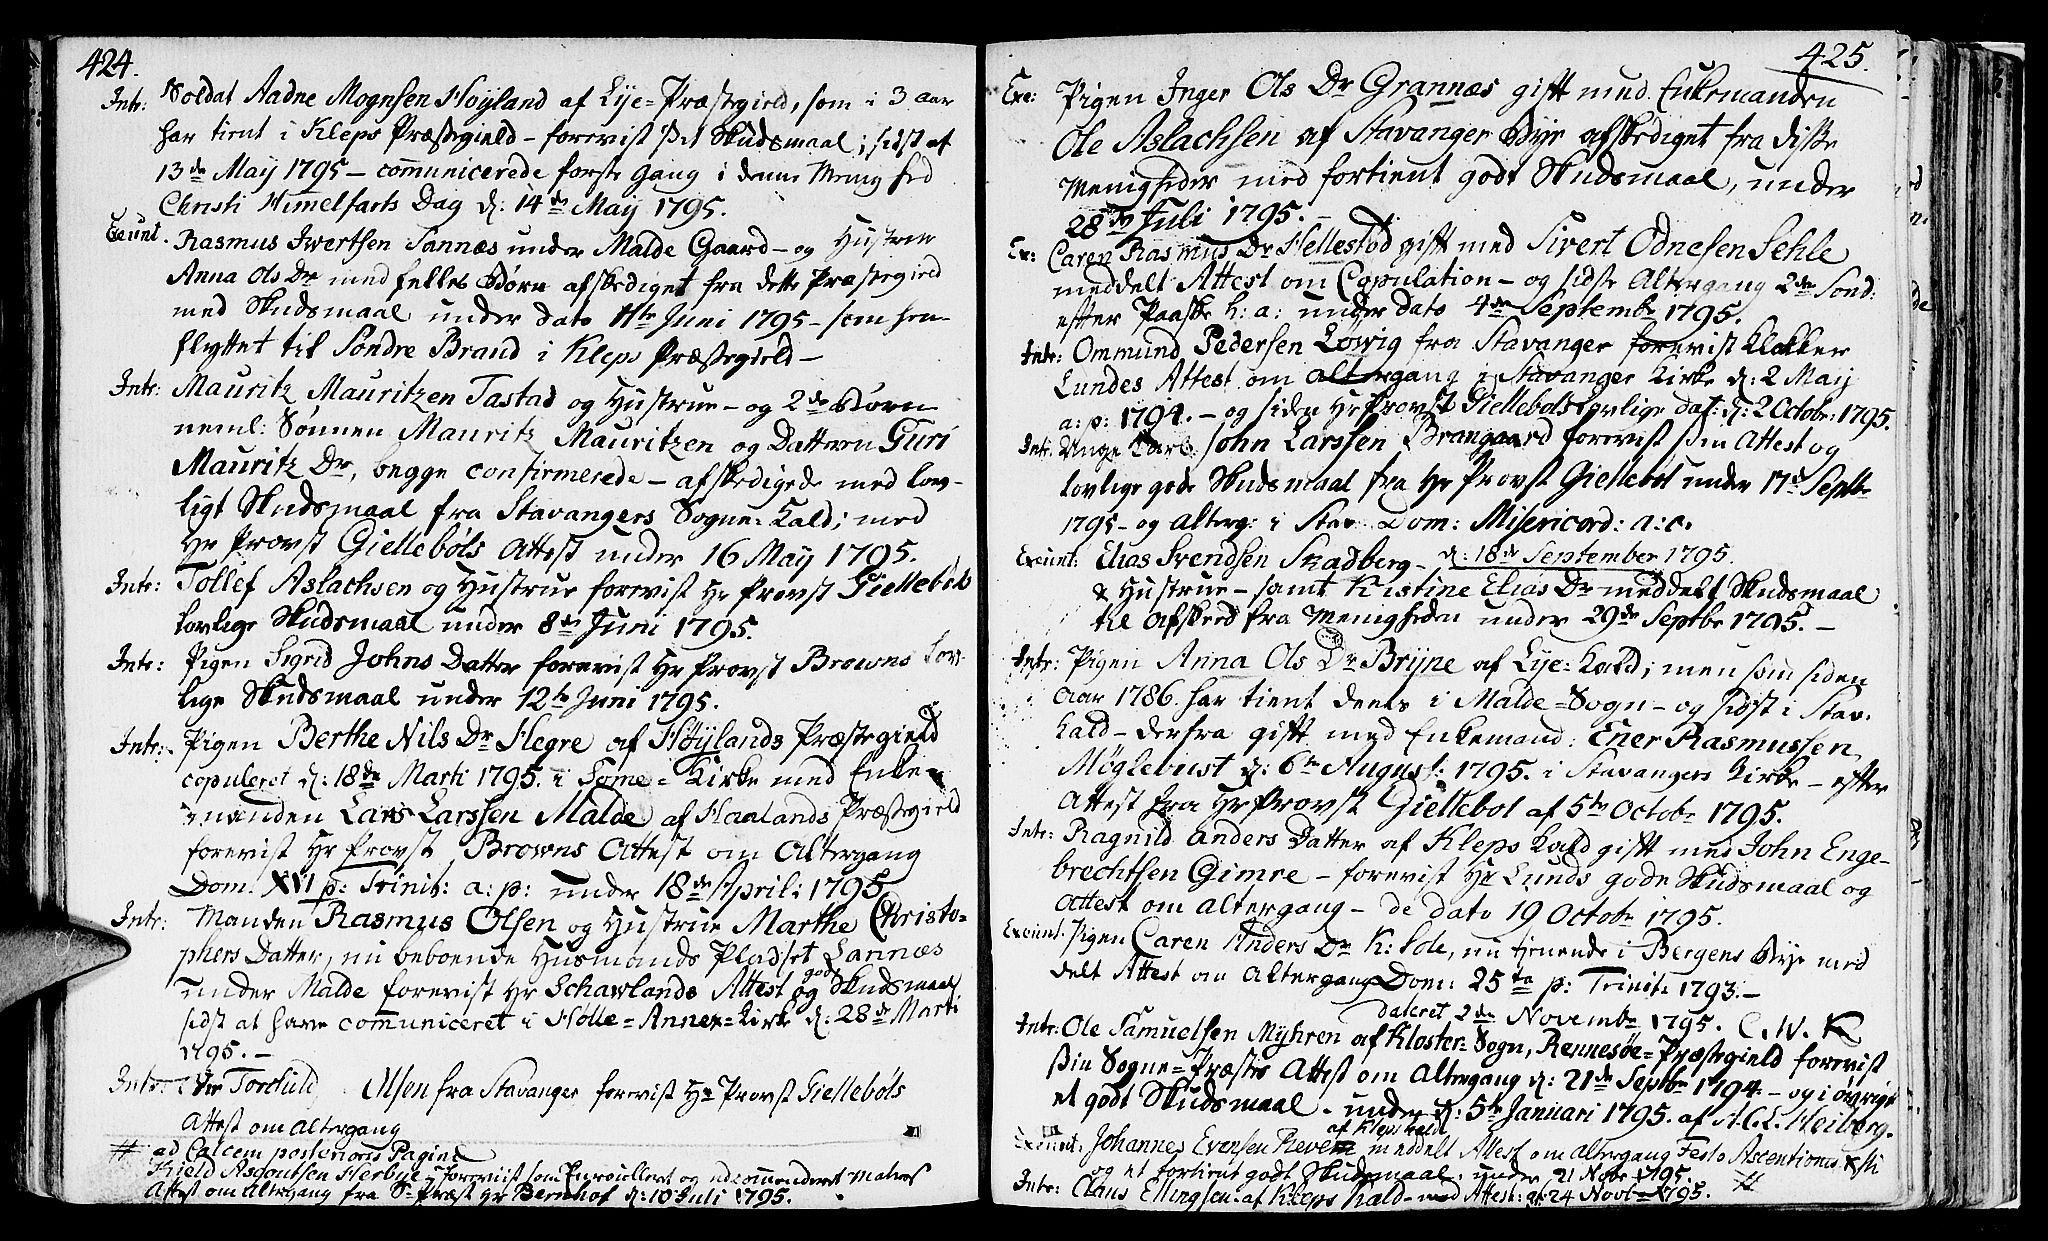 424.
Intr: Soldat Aadne Mognsen Høyland af Lye=Præstegield, som i 3 aar
har tient i Kleps Præstegield – forevist sit Skudsmaal; sidst af
13de May 1795 – communicerede første Gang i denne Menighed
Christi Himelfarts Dag d: 14de May 1795.
Exeunt. Rasmus Iwertsen Sannæs under Malde Gaard – og Hustrue
Anna Ols Dr med felles Børn afskediget fra dette Præstegield
med Skudsmaal under dato 11te Juni 1795 – som hen
flyttet til Søndre Braud i Kleps Præstegield –
Intr: Mauritz Mauritzen Tastad og Hustrue – og 2de Børn
neml: Sønnen Mauritz Mauritzen og Datteren Guri
Mauritz Dr, begge confirmerede – afskedigede med lov-
ligt Skudsmaal fra Stavangers Sogne=Kald; med
Hr Provst Giellebøls Attest under 16 May 1795.
Intr: Tollef Aslachsen og Hustrue forevist Hr Provst Giellebøls
lovlige Skudsmaal under 8de Juni 1795.
Intr: Pigen Sigrid Johns Datter forevist Hr Provst Browns lov-
lige Skudsmaal under 12te Juni 1795.
Intr: Pigen Berthe Nils Dr Hegre af Høylands Præstegield
copuleret d: 18de Marti 1795. i Some=Kirke med Enke-
manden Lars Larssen Malde af Haalands Præstegield
forevist Hr Provst Browns Attest om Altergang
Dom. XVI p: Trinit: a: p: under 18de April: 1795
Intr: Manden Rasmus Olsen og Hustrue Marthe Christo-
phers Datter, nu beboende Husmands Pladset Sannæs
under Malde forevist Hr Schawlands Attest og gode Skudsmaal
sidst at have communiceret i Hølle=Annex=Kirke d: 28de Marti
1795. –
Intr: Torchild Olsen fra Stavanger forevist Hr Provst Giellebøls
Attest om Altergang
# ad Calcem posterioris Paginæ
Kield Asgoutsen forevist som Enroulleret og udcommenderet Matros
Attest om Altergang fra S: Præst Hr Bernhof d: 10 Juli 1795.
425.
Exe: Pigen Inger Ols Dr Grannæs gift med Enkemanden
Ole Aslachsen af Stavanger Bye afskediget fra diske
Menigheder med fortient godt Skudsmaal, under
28de Juli 1795. –
Ex: Caren Rasmus Dr Hellestød gift med Sivert Odnesen Sehle
meddelt Attest om Copulation – og sidste Altergang 2den Sond:
efter Paaske h: a: under dato 4de Septembr 1795.
Intr: Ommund Pedersen Løwig fra Stavanger forevist Klokker
Lundes Attest om altergang i Stavanger Kirke d: 2 May
a: p: 1794. – og siden Hr Provst Giellebøls lovlige dat: d: 2 Octobr: 1795.
Intr. Unge Karl John Larssen Brangaard forevist sin Attest og
lovlige gode Skudsmaal fra Hr Provst Giellebøl under 17de Septbr
1795 – og Alterg: i Stav: Dom: Misericord: a: c.
d: 18de September 1795.
Exeunt: Elias Svendsen Skadberg –
& Hustrue – samt Kistine Elias Dr meddelt Skudsmaal
til Afskeed fra Menigheden under 29de Septbr 1795. –
Intr: Pigen Anna Ols Dr Bryne af Lye=Kald; men som siden
Aar 1786. har tient deels i Malde=Sogn – og sidst i Stav.
Kald – derfra gift med Enkemand: Ener Rasmussen
Møglebust d: 6te August: 1795. i Stavangers Kirke – efter
Attest fra Hr Provst Giellebøl af 5te Octobr 1795.
Intr: Ragnild Anders Datter af Kleps Kald gift med John Enge-
brechtsen Gimre – forevist Hr Lunds gode Skudsmaal og
Attest om Altergang – de dato 19 Octobr 1795.
Exeunt. Pigen Caren Anders Dr K: Sole, nu tienende i Bergens Bye med
delt Attest om Altergang Dom: 25ta p: Trinit: 1793. –
dateret 2de Novembr 1795. C. W. K
Intr: Ole Samuelsen Myhren af Kloster=Sogn, Rennesøe=Præstegield forevist
sin Sogne=Præstes Attest om Altergang d: 21de Septbr 1794. – og i øvrigt
et godt Skudsmaal – under d: 5te Januari 1795. af A. C. L. Heiberg.
af Kleps Kald
Exeunt: Johannes Evensen Reven meddelt Attest om Altergang Festo Ascentionis Xsti
og et fortient godt Skudsmaal, under 21 Novbr 1795.
Intr: Claus Ellingsen af Kleps Kald – med Attest: af 24 Novbr 1795. #